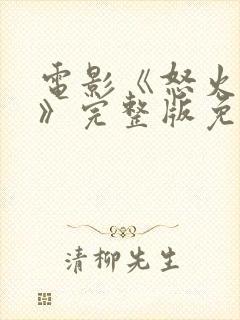 電影《怒火
》完整版免
清柳先生